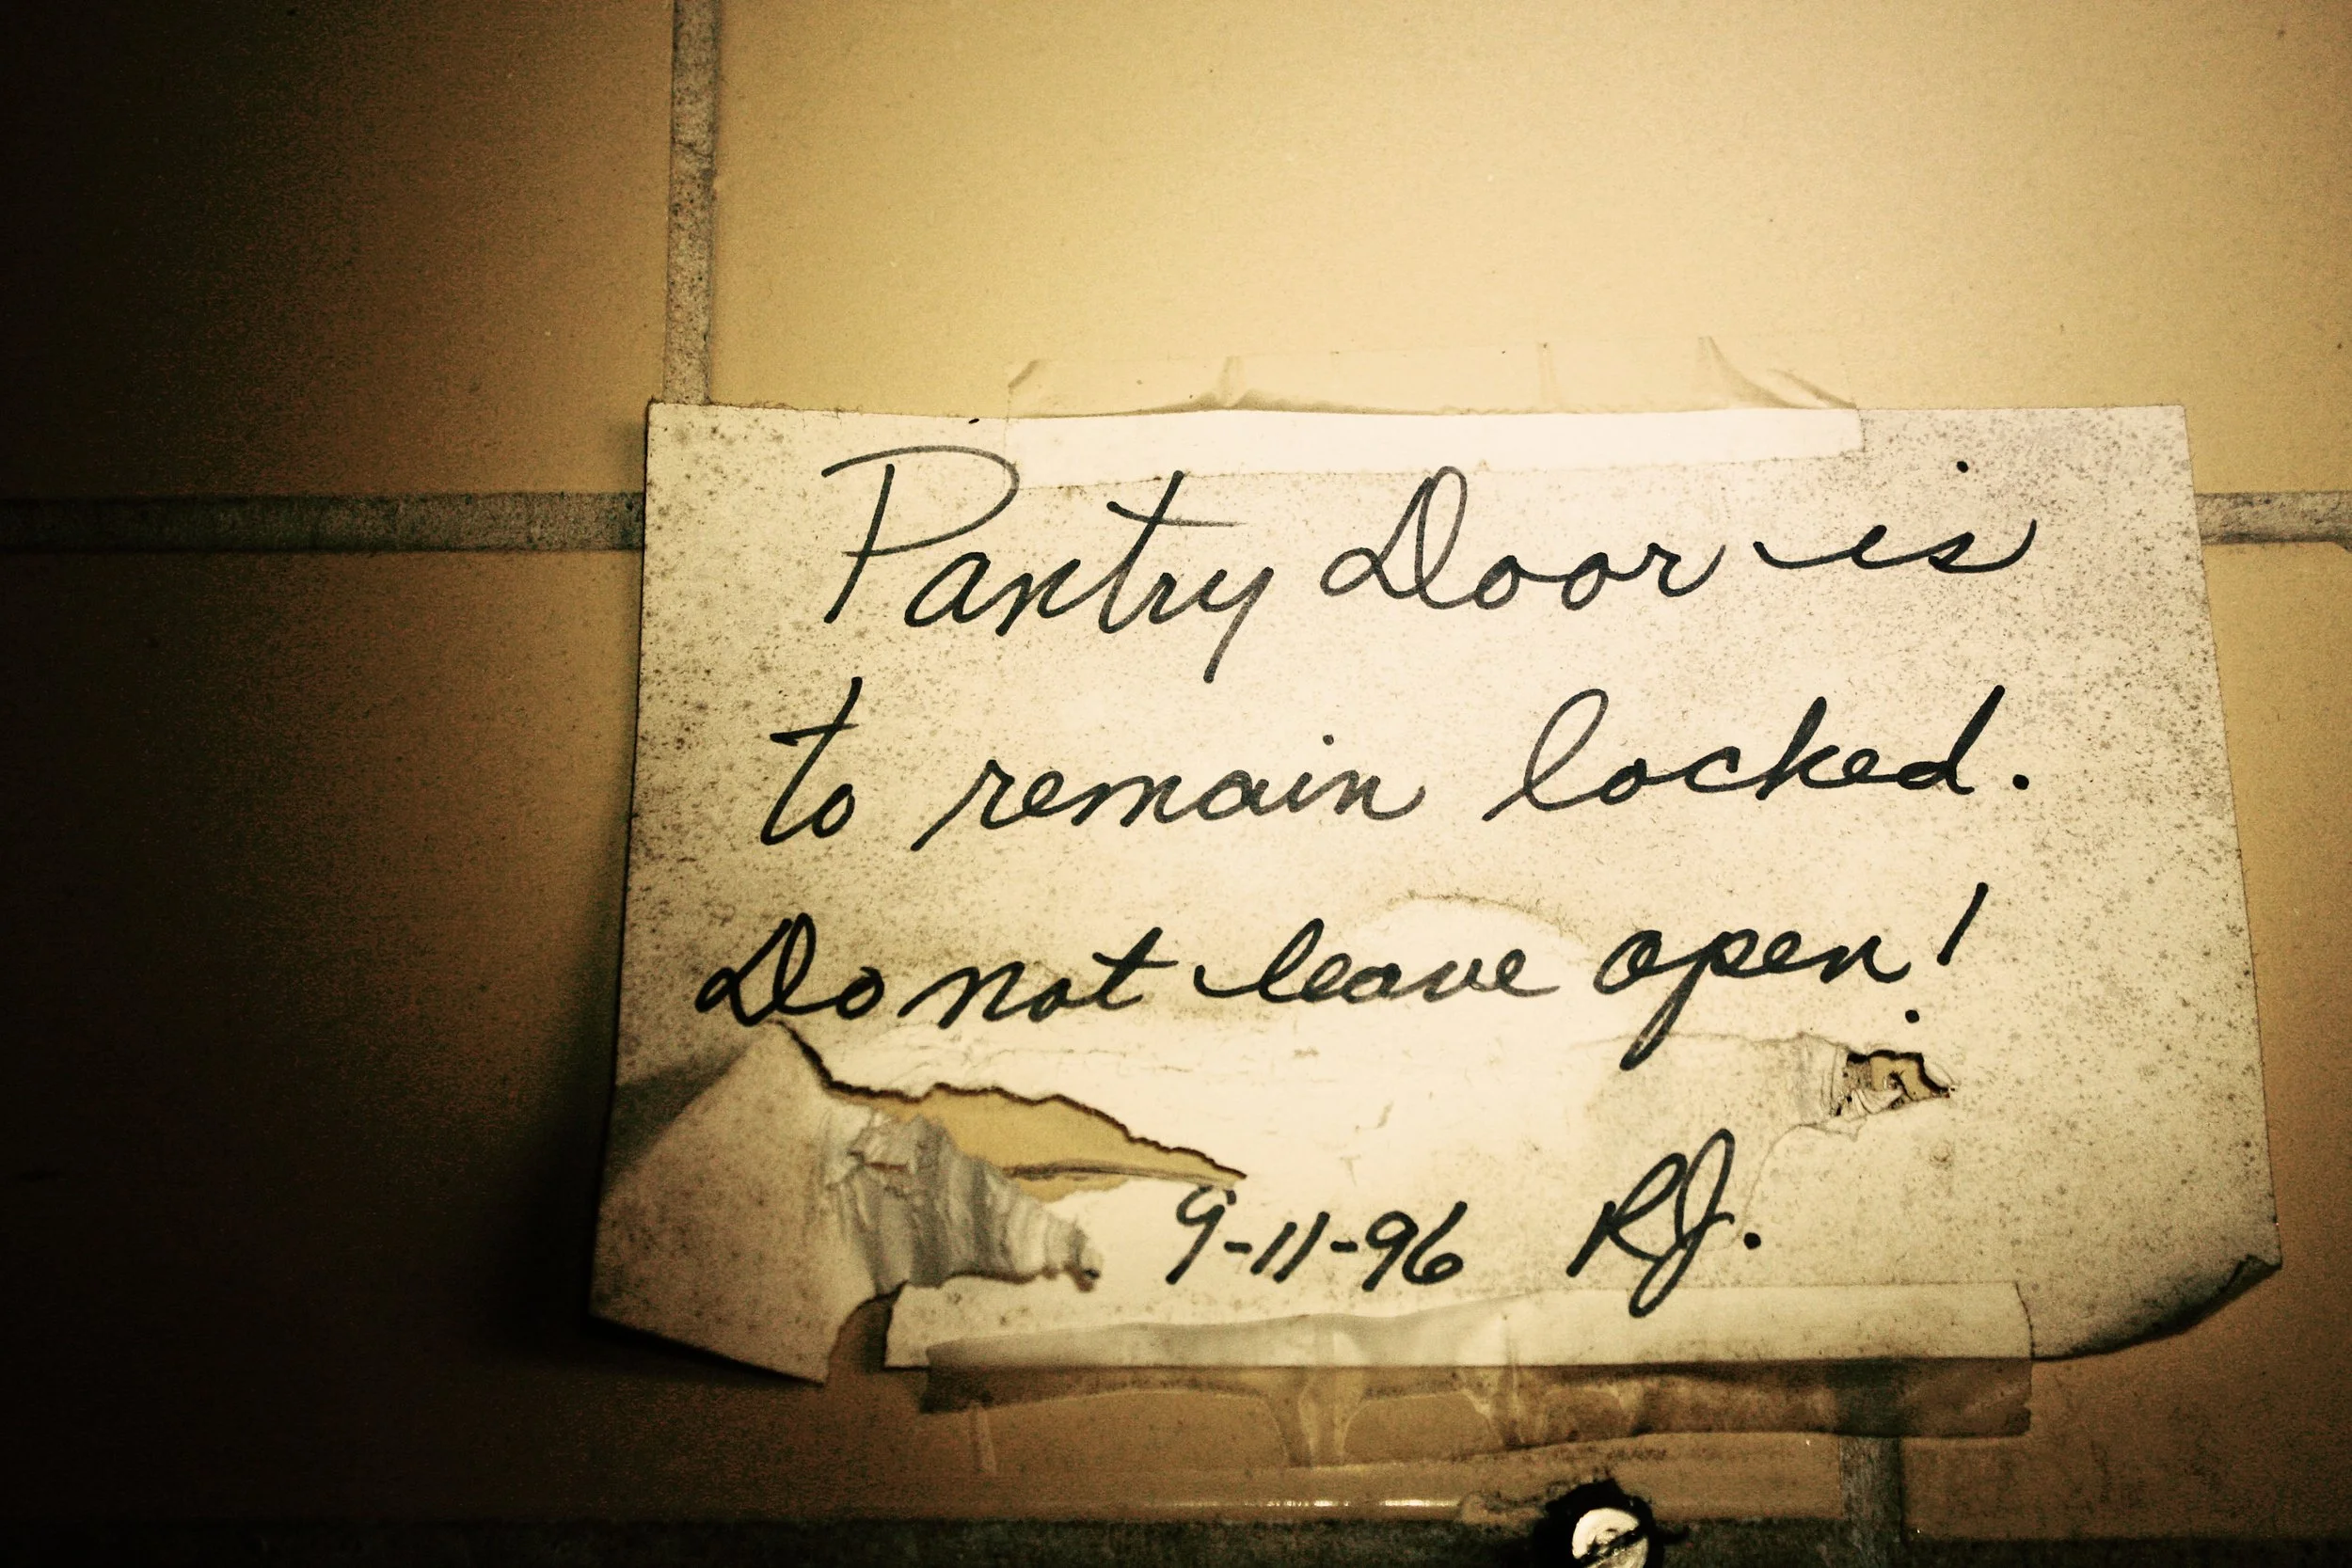 Pantry Door is
to remain locked.
Do not leave open!
9-11-96 RJ.